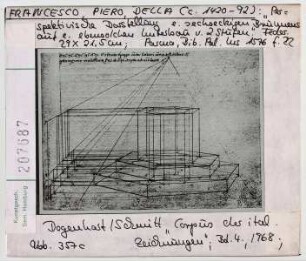 FRANCESCO, PIERO DELLA (c. 1420-92): Per-
spektivische Darstellung e. sechseckigen Brunnens
auf e. ebensolchen Unterbau v. 2 Stufen, Feder
29 x 21.5 cm, Parma, Bib. Pal. Ms 1576 f. 22
207687
Kunstgesch.
Sem. Hamburg
Degenhart/Schmitt, Corpus der ital.
Abb. 357c Zeichnungen, Bd. 4, 1968,